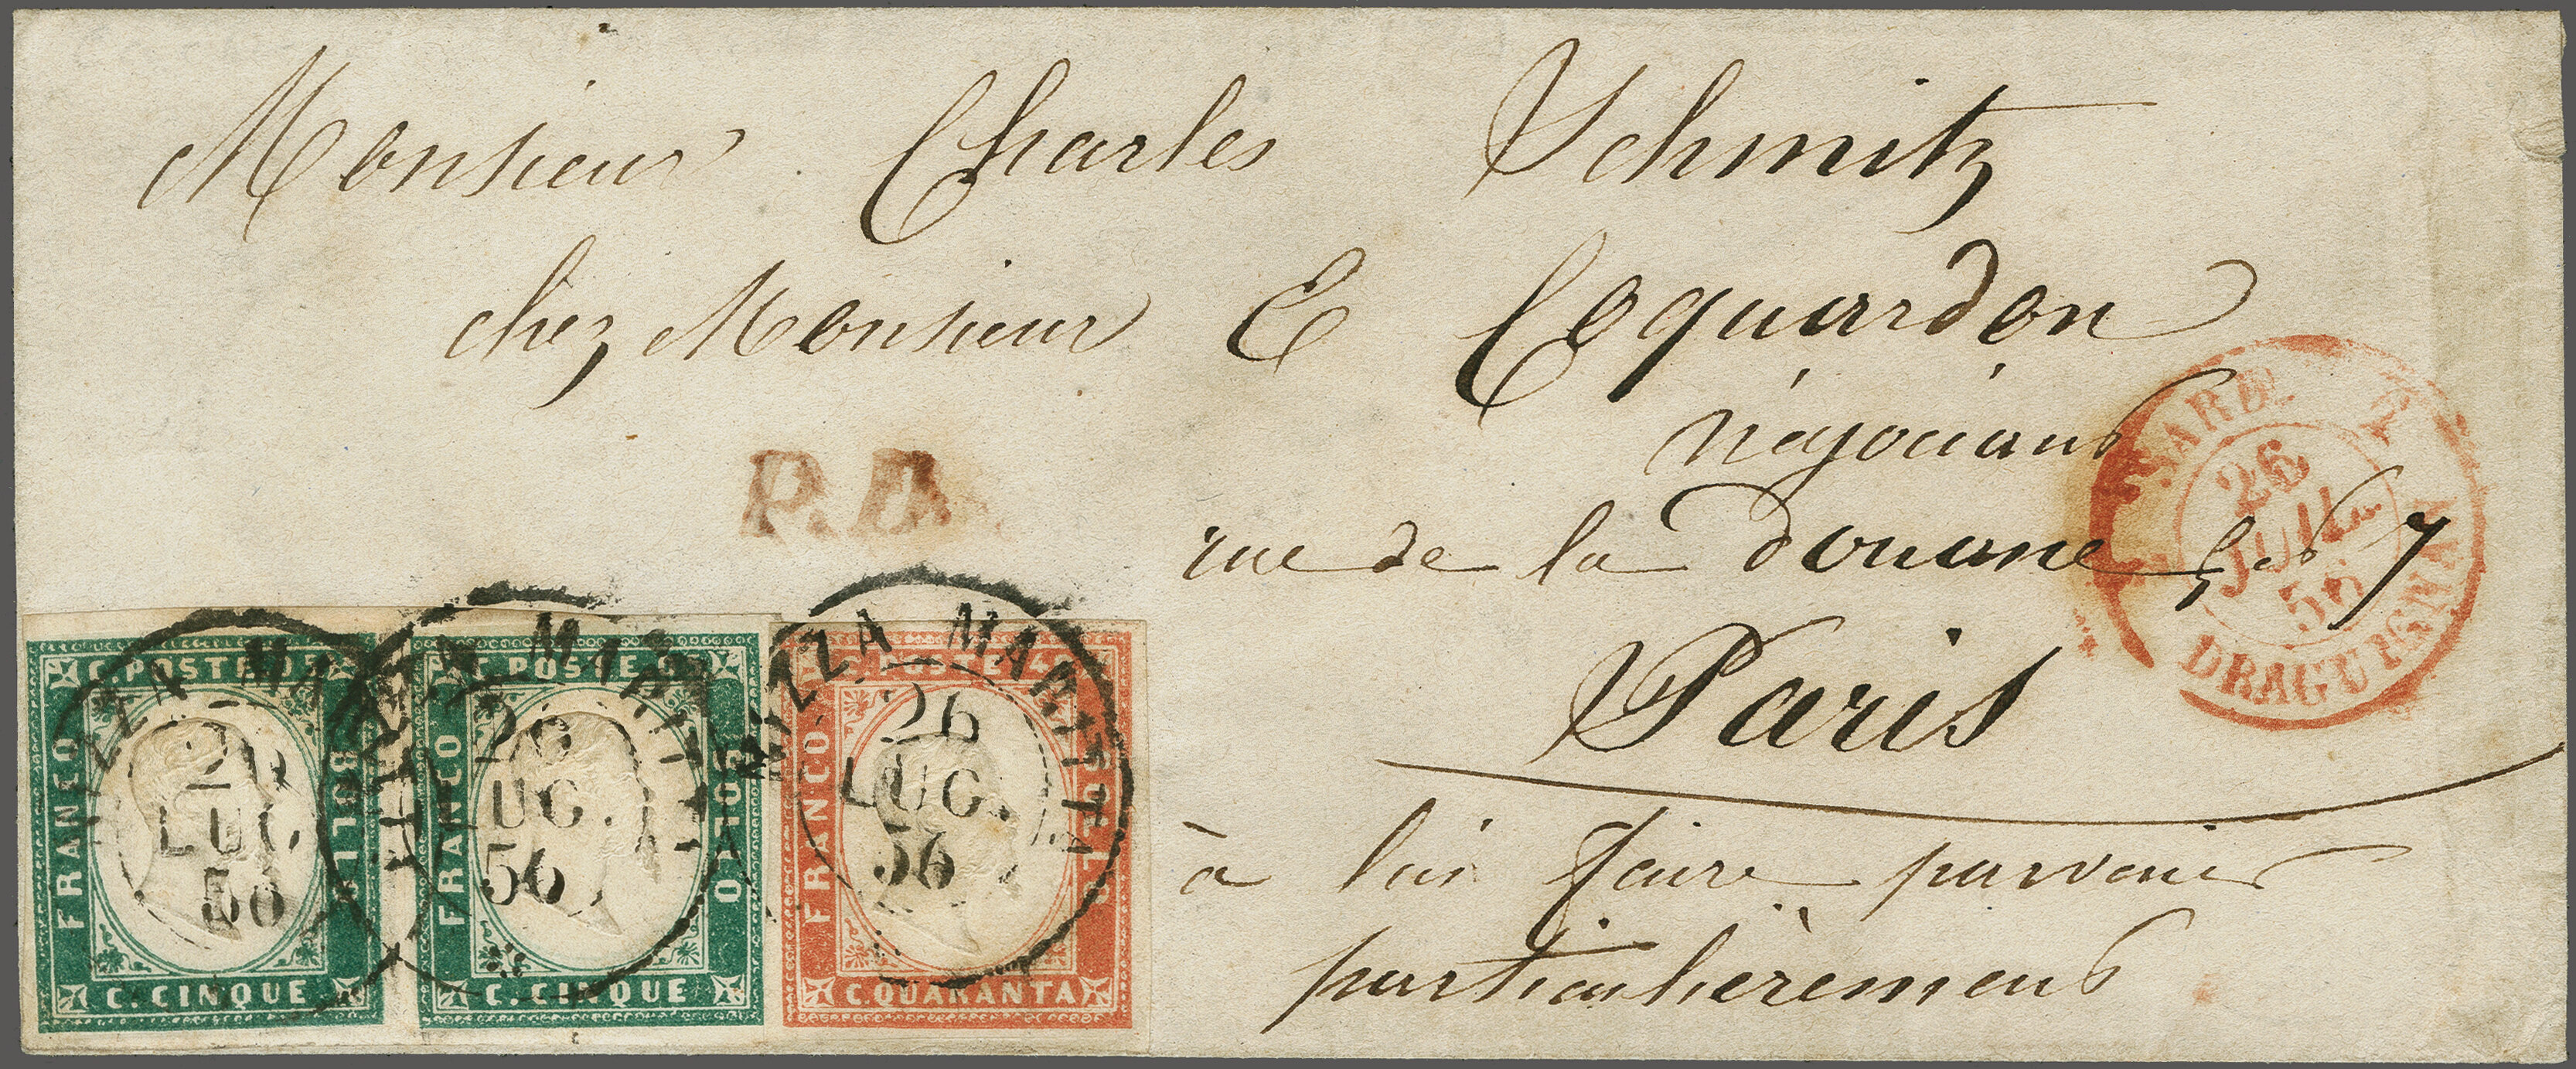 Monsieur Charles Schmitz
chez Monsieur E Coquardon
négociant
rue de la Douane, no 7
Paris
à lui faire parvenir
particulièrement
P.D.
SARD.
26
JUIL.
56
DRAGUIGNAN
NIZZA MARITTA
26
LUG.
56
NIZZA MARITTA
26
LUG.
56
NIZZA MARITTA
26
LUG.
56
C. POSTE 05
FRANCO
BOLLO
C. CINQUE
C. POSTE 05
FRANCO
BOLLO
C. CINQUE
C. POSTE 4
FRANCO
BOLLO
C. QUARANTA